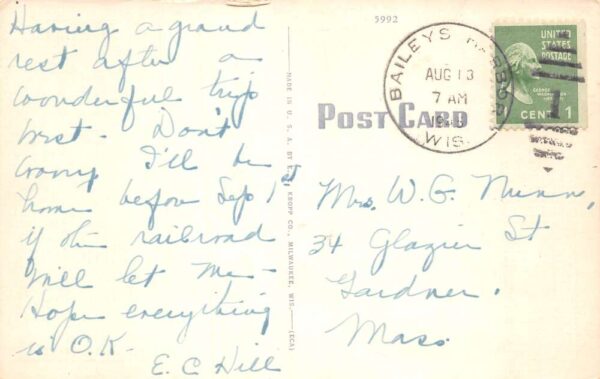 Having a grand
rest after a
wonderful trip
West - Don't
worry I'll be
home before Sep 1st
if the railroad
will let me -
Hope everything
is O.K.
E. C. Hill
MADE IN U. S. A. BY E. C. KROPP CO., MILWAUKEE, WIS. (ECA)
5992
POST CARD
BAILEYS HARBOR
AUG 13
7 AM
WIS.
UNITED
STATES
POSTAGE
GEORGE WASHINGTON
CENT 1
Mrs. W. G. Nunn,
34 Glazier St
Gardner.
Mass.